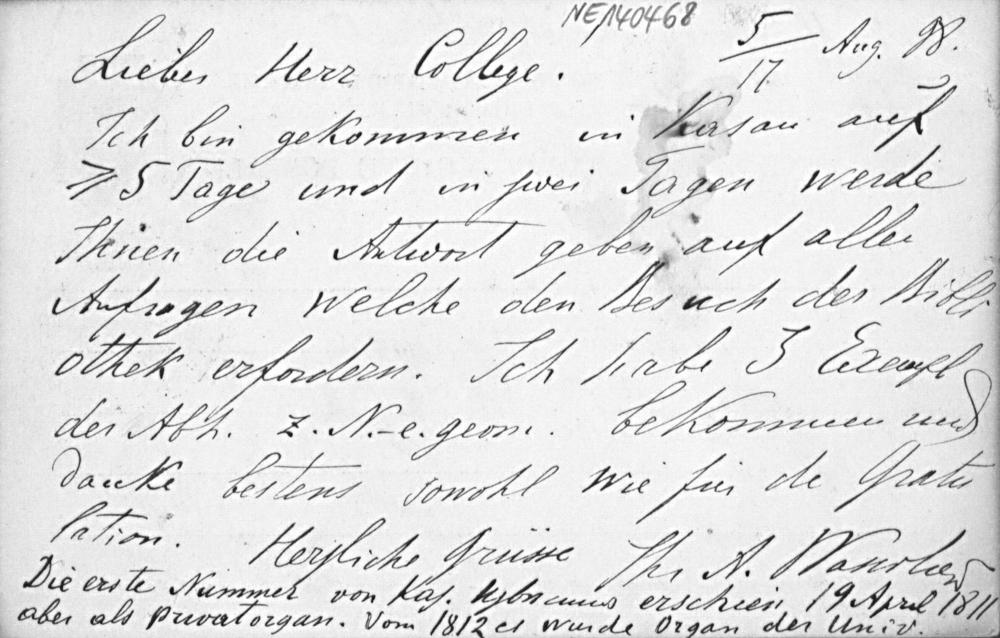 NE/140468
5/17 Aug. 98.
Lieber Herr College.
Ich bin gekommen in Kasan auf
5 Tage und in zwei Tagen werde
Ihnen die Antwort geben auf aller
Anfragen welche den Besuch der Bibli
othek erfordern. Ich habe 3 Exempl
der Abh. z. N.-e. geom. bekommen und
danke bestens sowohl wie für de Gratu
lation. Herzliche Grüsse Ihr A. Wassiliew
Die erste Nummer von Kas. erschien 19 April 1811
aber als Privatorgan. Vom 1812 es wurde Organ der Univ.